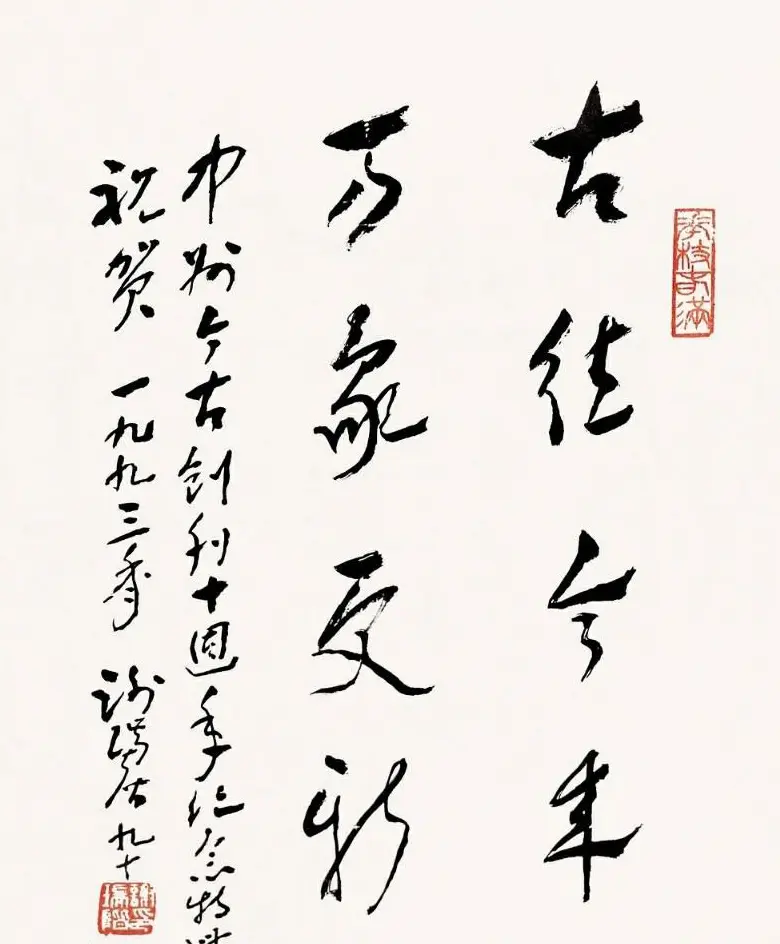 古往今来
万象更新
中州今古创刊十週年纪念特
祝贺 一九九三年 谢瑞阶九十
謝印瑞階